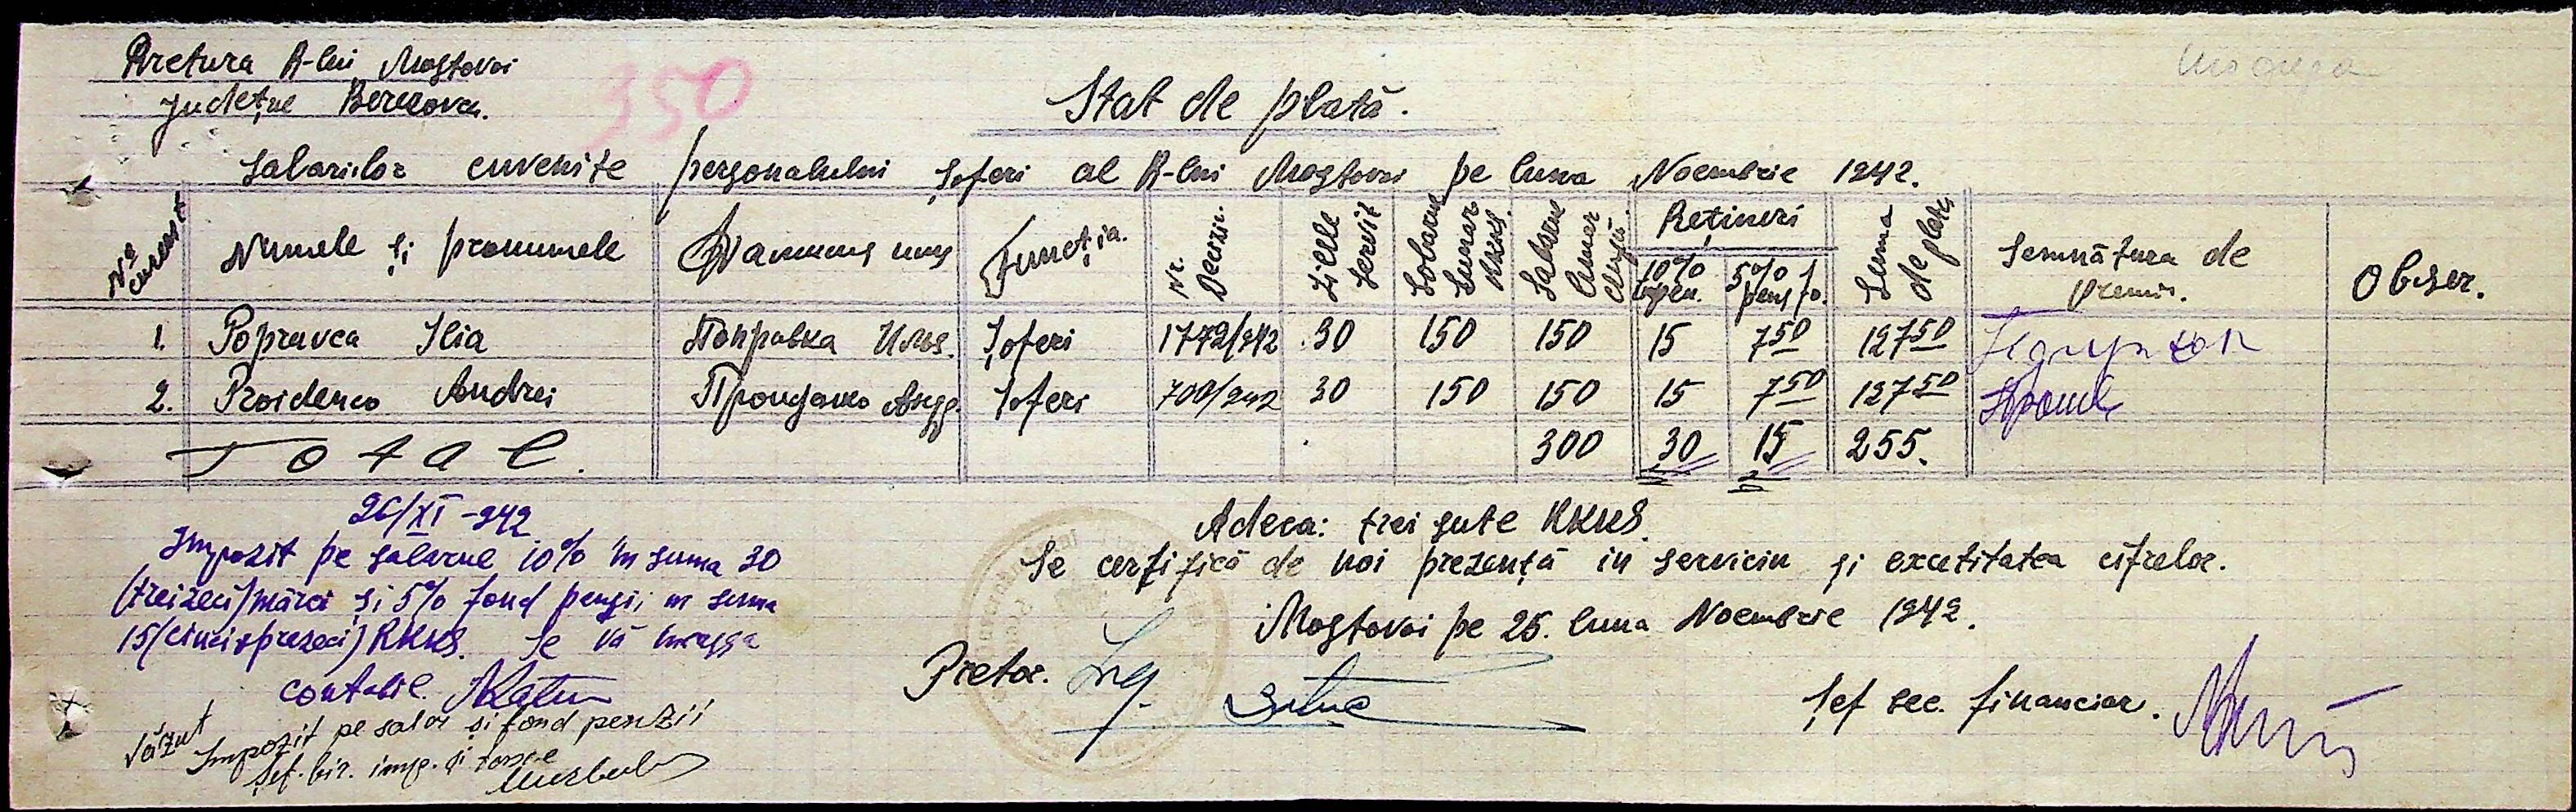 Pretura R-lui Mostovoi
Județul Berezovca.
350
Stat de plată.
Salariilor cuvenite personalului șoferi al R-lui Mostovoi pe luna Noembrie 1942.
Nº curent
Numele și pronumele
Функția.
Nr. Decizii.
Zilele servit
Salarul lunar RKKS.
Salarul lunar
Rețineri
10%
5% pens.
Suma de plată
Semnătura de primir.
Obser.
1. Popravca Ilia Поправка Илья. Șoferi 1772/942 30 150 150 15 7 50 127 50
2. Proidenco Andrei Пройденко Андр. Șoferi 700/942 30 150 150 15 7 50 127 50
Total. 300 30 15 255.
26/XI-942
Impozit pe salarul 10% în suma 30
(treizeci) mărci și 5% fond pensii in suma
15 (cincisprezeci) RKKS. Se va
contabil.
Văzut
Impozit pe salar și fond penzii
Șef. bir. imp. și taxe
Adeca: trei sute RKKS.
Se certifică de noi prezență in serviciu și excetitatea cifrelor.
Mostovoi pe 25. luna Noembrie 1942.
Pretor. Ing.
Șef sec. financiar.